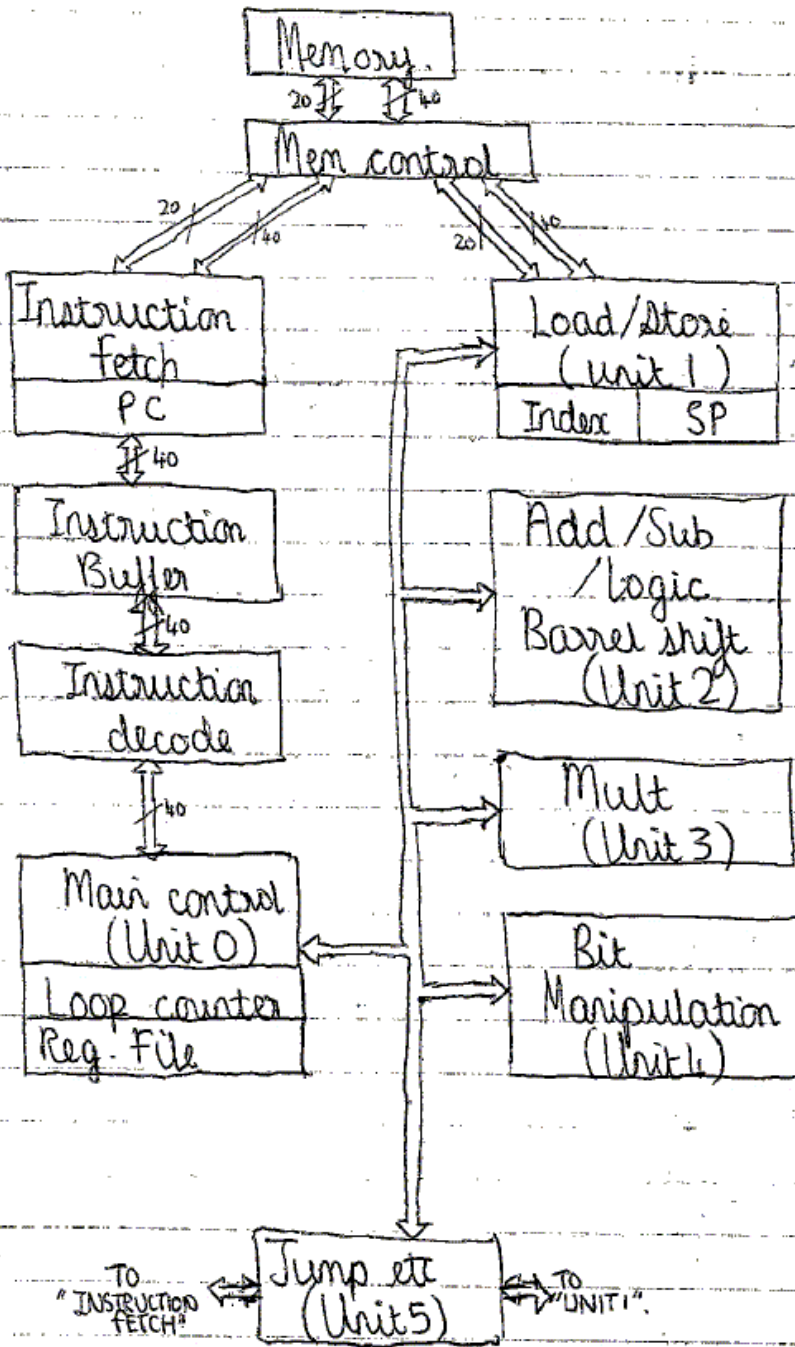 Memory.
20 40
Mem control
20 40 20 40
Instruction
fetch
PC
40
Instruction
Buffer
40
Instruction
decode
40
Main control
(Unit 0)
Loop counter
Reg. File
Load/Store
(unit 1)
Index SP
Add/Sub
/Logic
Barrel shift
(Unit 2)
Mult
(Unit 3)
Bit
Manipulation
(Unit 4)
Jump etc
(Unit 5)
TO
"INSTRUCTION
FETCH"
TO
"UNIT1".